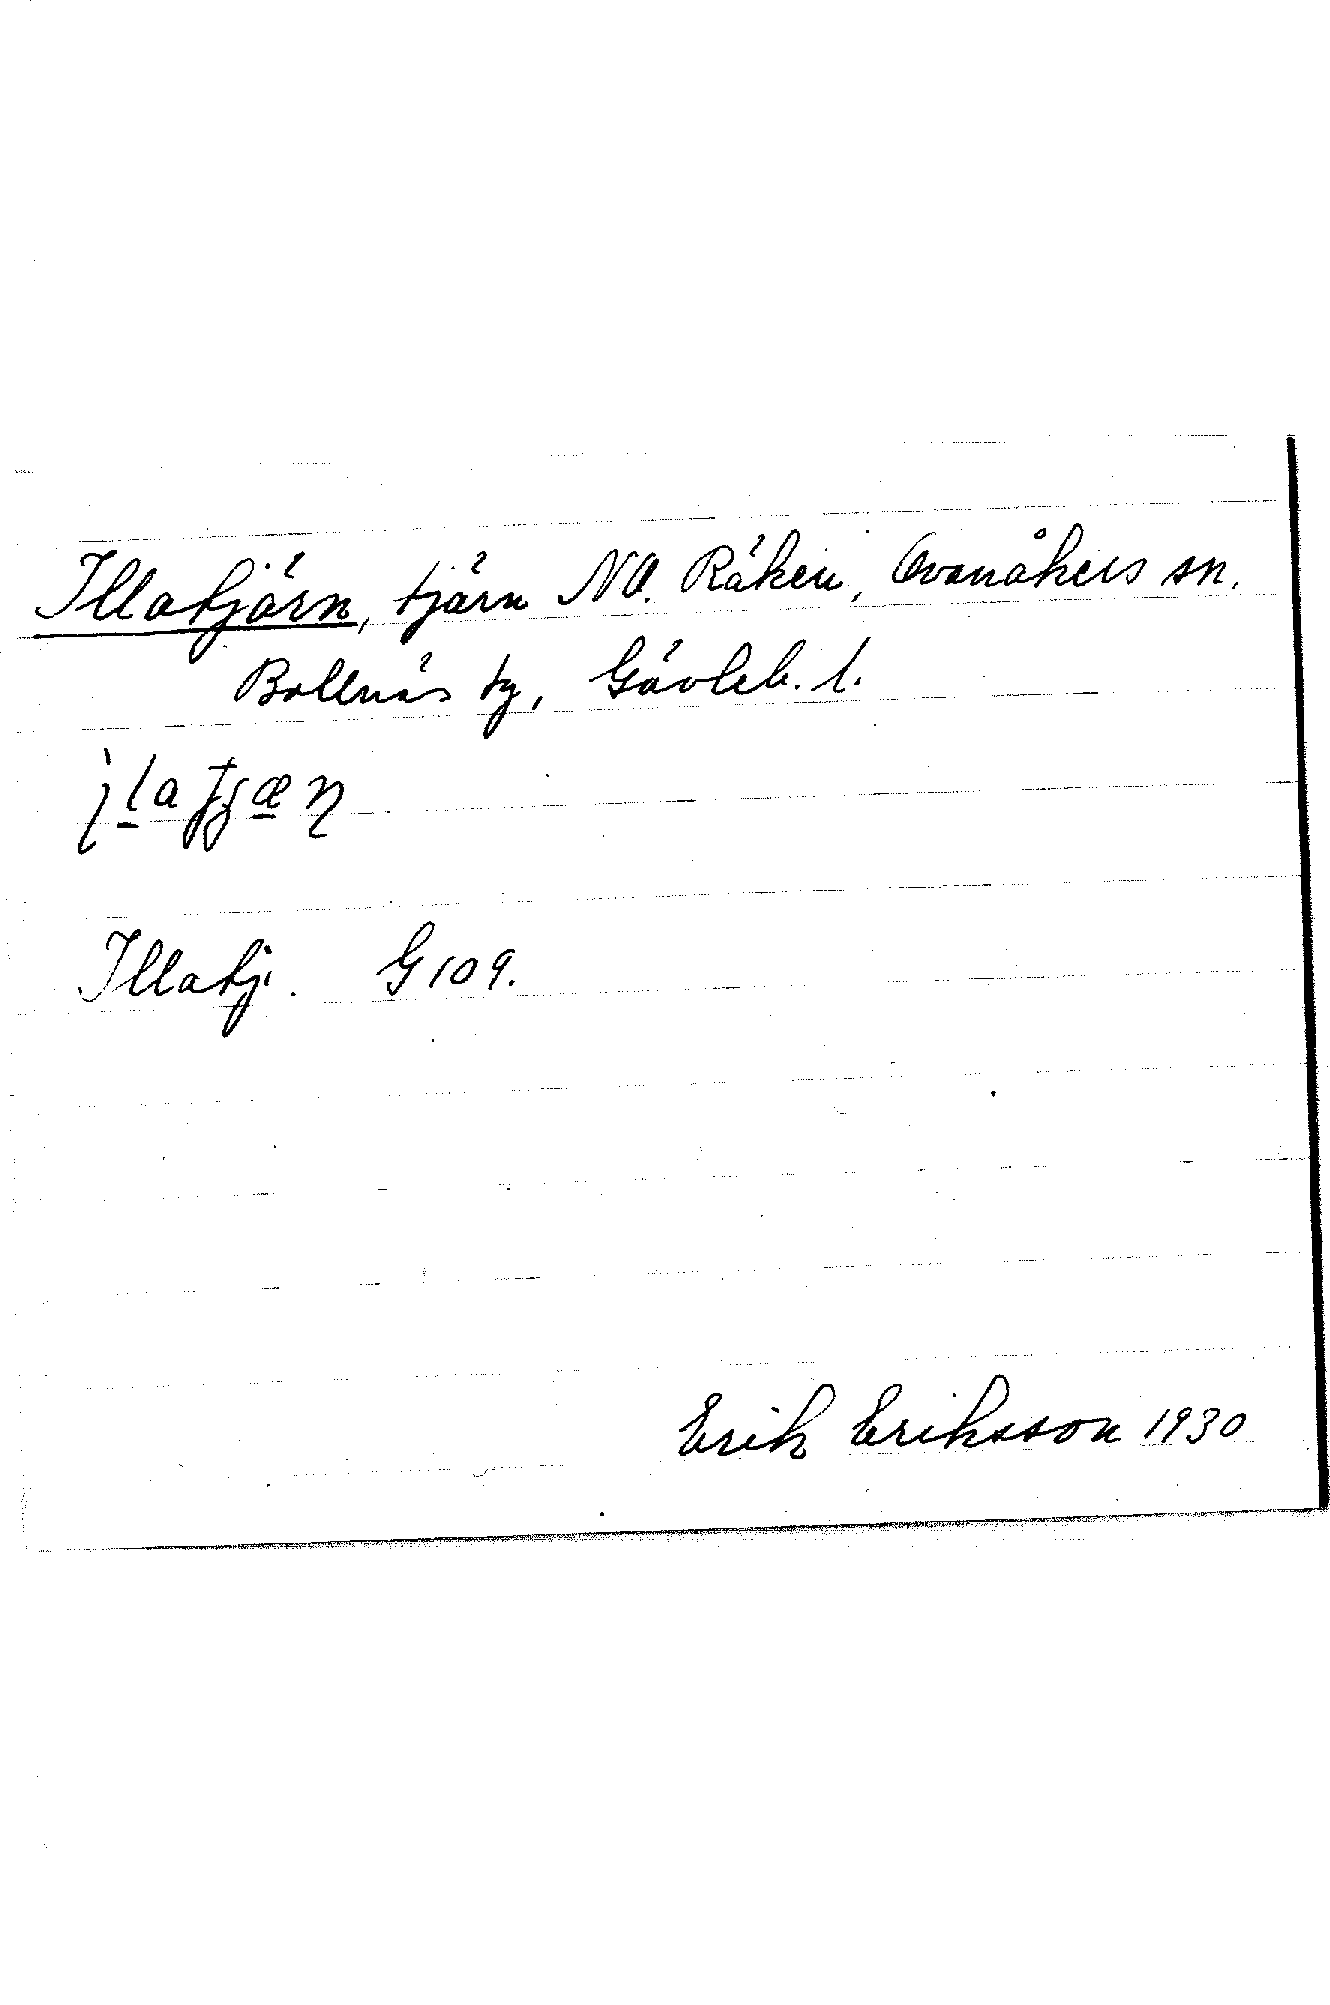 Illatjärn, tjärn NO. Räken, Ovanåkers sn.
Bollnäs tg, Gävleb. l.
Illatj. G 109.
Erik Eriksson 1930